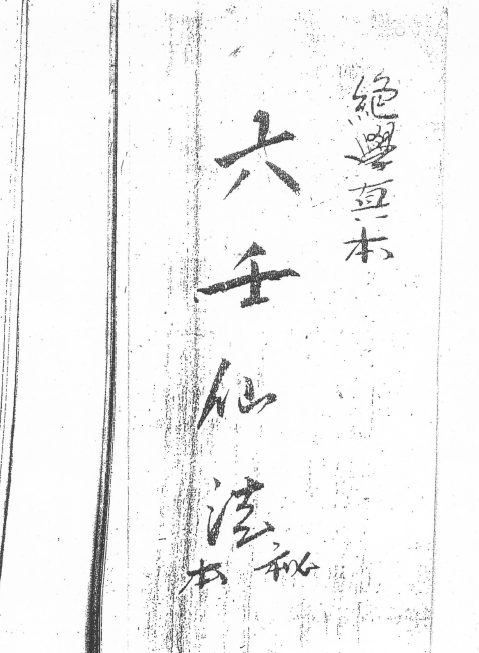 絕學真本
六壬仙法
秘本